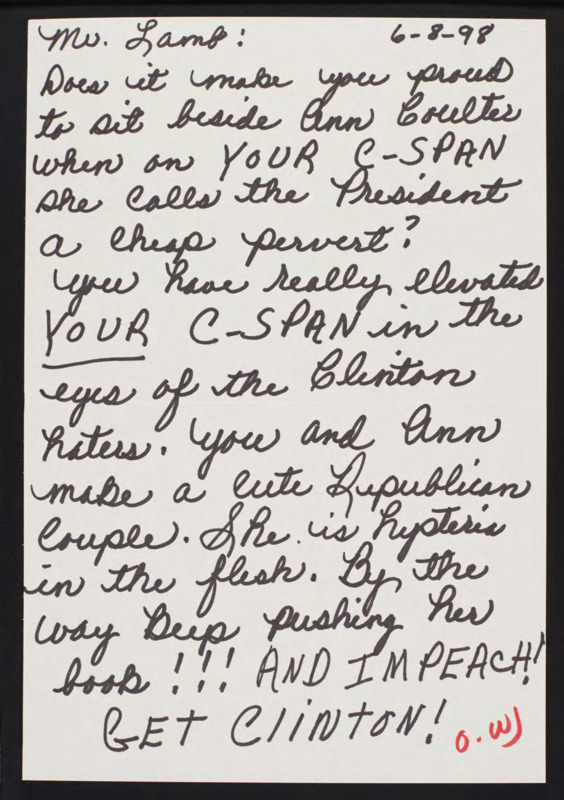 Mr. Lamb: 6-8-98
Does it make you proud
to sit beside Ann Coulter
when on YOUR C-SPAN
she calls the President
a cheap pervert?
you have really elevated
YOUR C-SPAN in the
eyes of the Clinton
haters. You and Ann
make a cute Republican
couple. She is hysteria
in the flesh. By the
way keep pushing her
book!!! AND IMPEACH!
GET CLiNTON! O.W